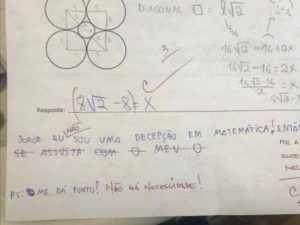 DIAGONAL □ = l√2
16√2 = 16 + 2x
16√2 - 16 = 2x
16√2 - 16 = x
2
8√2 -
3
Resposta: (8√2 - 8) = x
C
JORGE EU NÃO SOU UMA DECEPÇÃO EM MATEMÁTICA! ENTÃ
SE ASSUSTA COM O MEU 0
ME
PS: ME DÁ PONTO! NÃO HÁ NECESSIDADE!